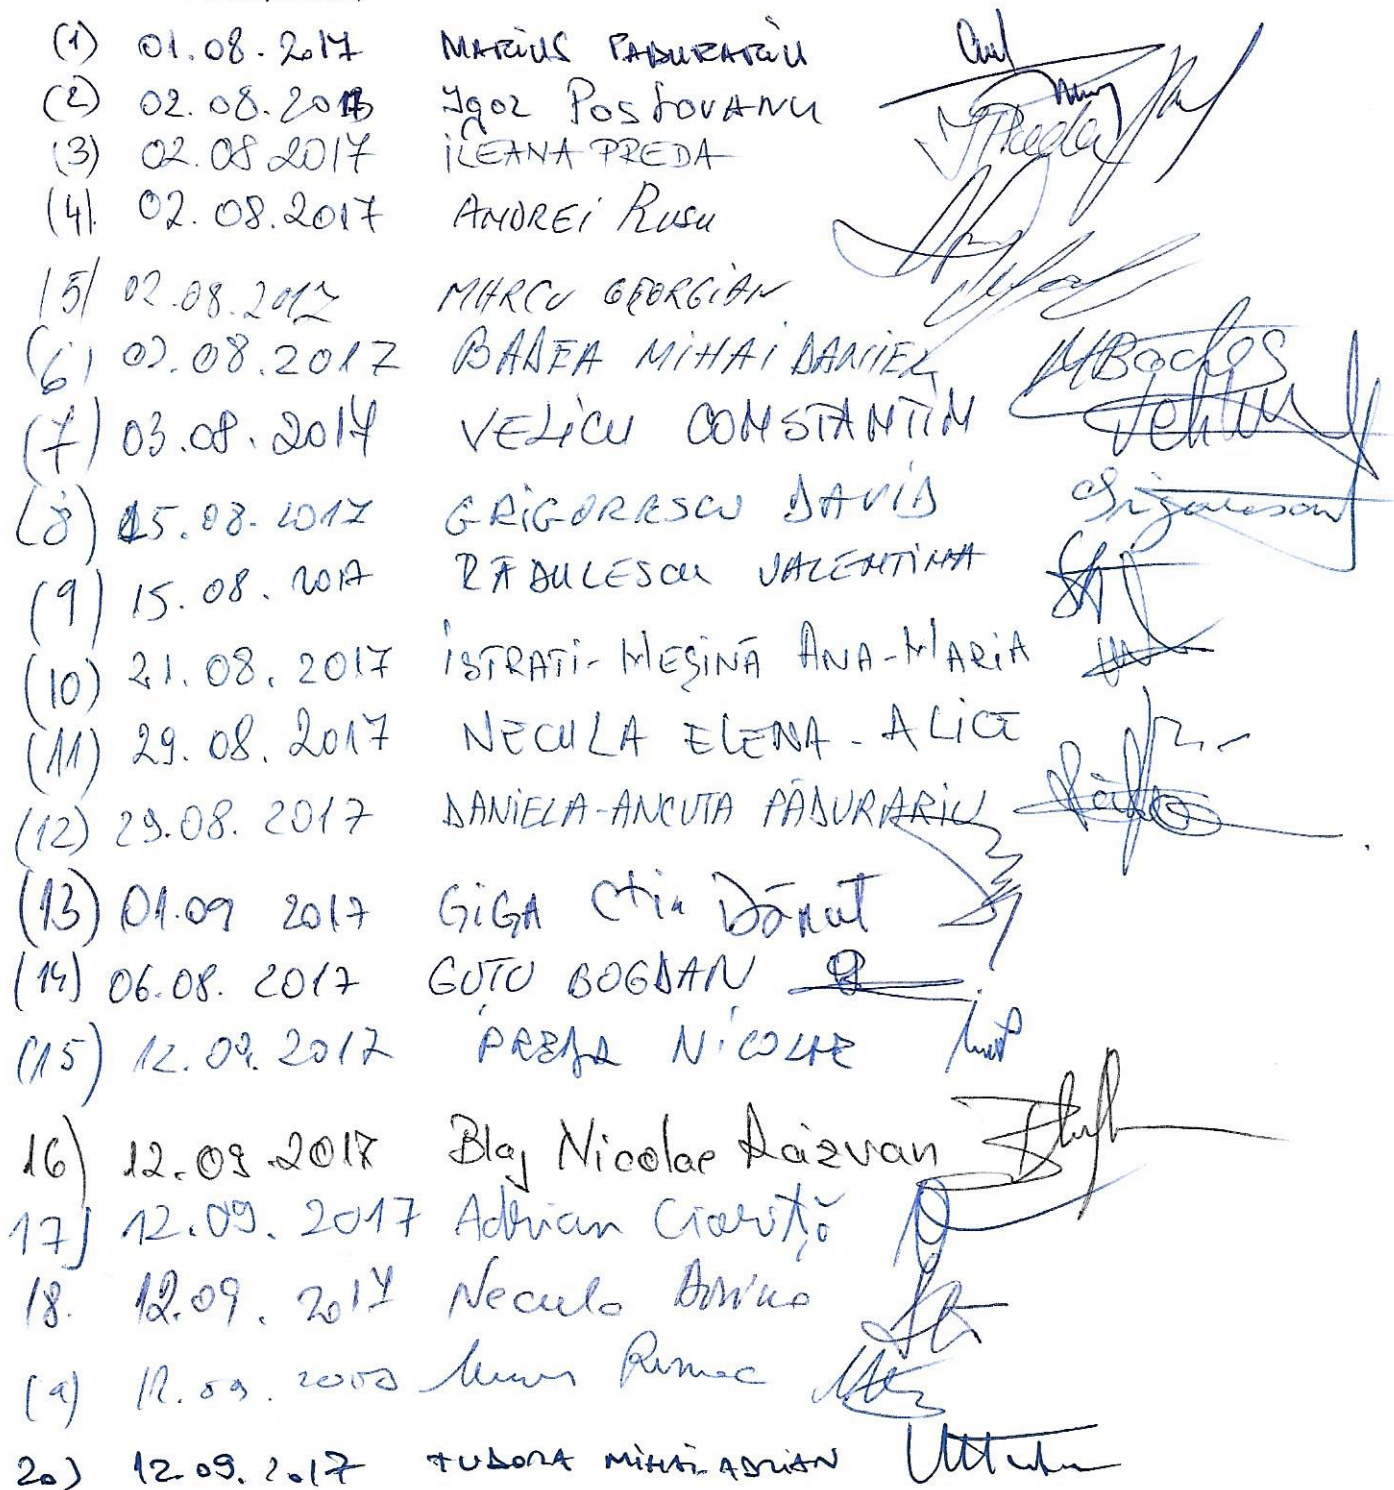 (1) 01.08.2017 MARIUS PADURARIU
(2) 02.08.2017 Igor POSTOVANU
(3) 02.08.2017 ILEANA PREDA IPreda
(4) 02.08.2017 ANDREI RUSU
(5) 02.08.2017 MARCU GEORGIAN
(6) 02.08.2017 BADEA MIHAI DANIEL
(7) 03.08.2017 VELICU CONSTANTIN
(8) 15.08.2017 GRIGORESCU DAVID Grigorescu
(9) 15.08.2017 RĂDULESCU VALENTINA
(10) 21.08.2017 ISTRATI-MEȘINĂ ANA-MARIA
(11) 29.08.2017 NECULA ELENA-ALICE
(12) 29.08.2017 DANIELA-ANCUTA PĂDURARIU
(13) 01.09 2017 GIGA Ctin Dănuț
(14) 06.08.2017 GUȚU BOGDAN
(15) 12.09.2017 PREDA NICOLAE
16) 12.09.2017 Blaj Nicolae Răzvan
17) 12.09.2017 Adrian
18. 12.09.2017 Necula
12.09.
20) 12.09.2017 TUDORA MIHAI ADRIAN